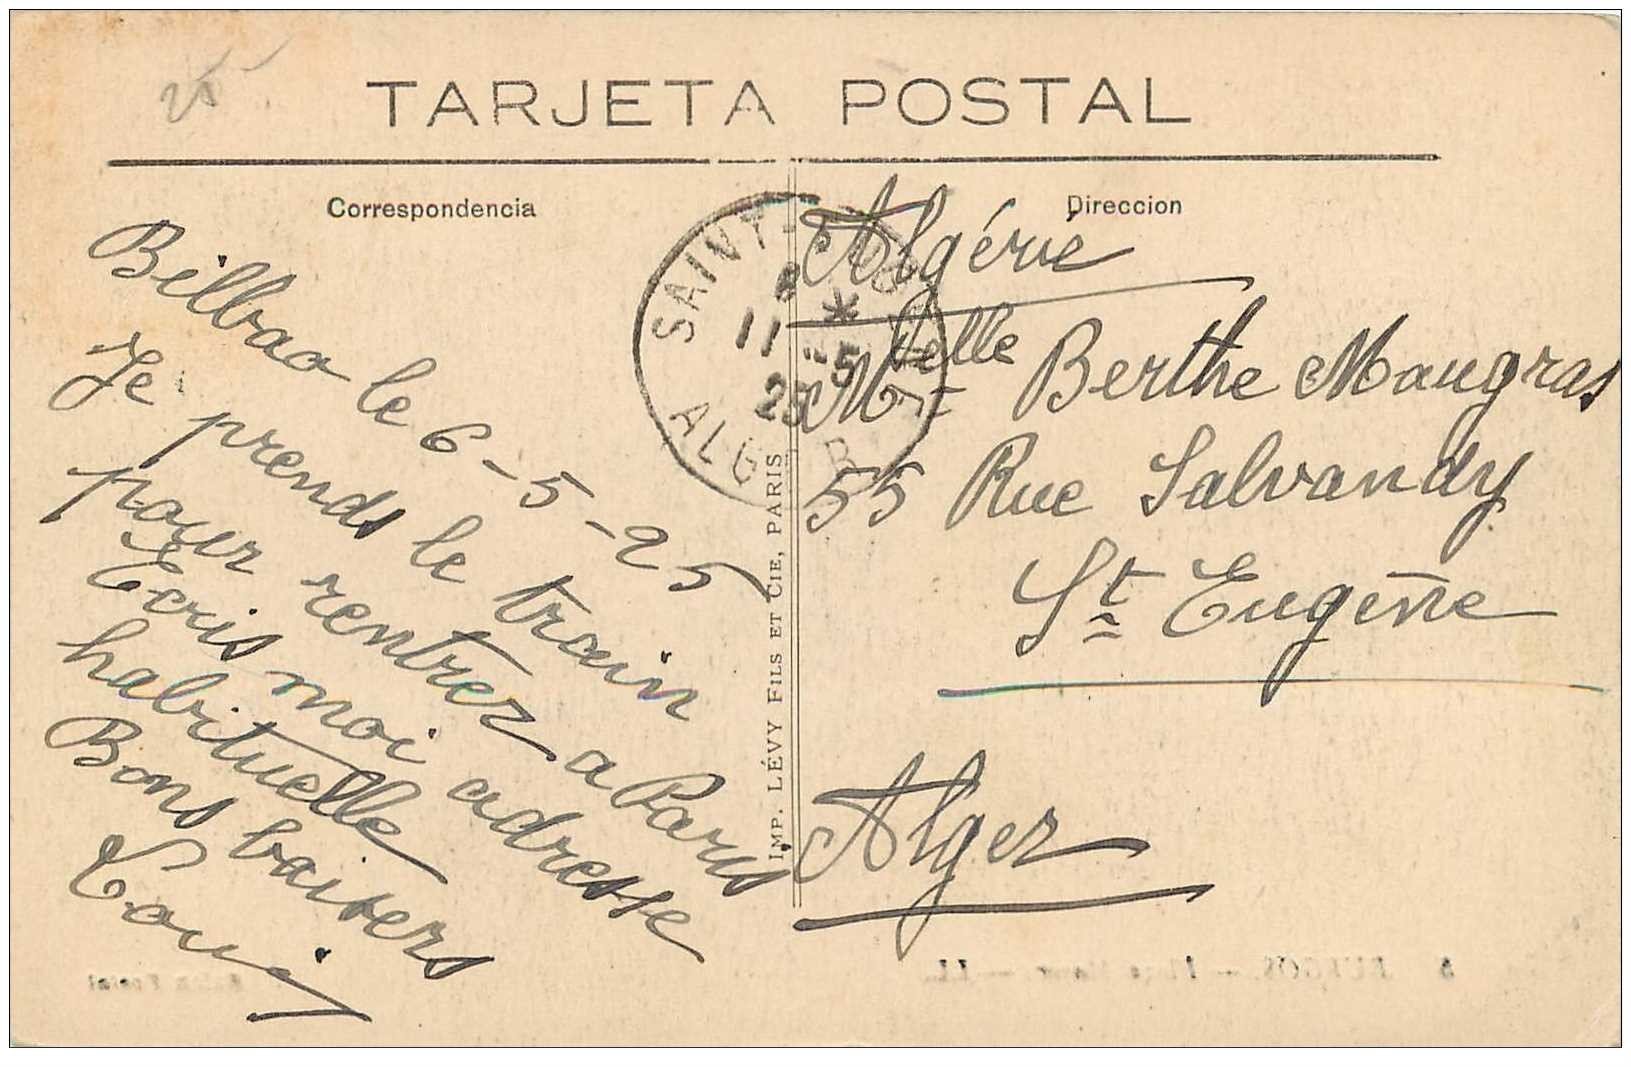 25
TARJETA POSTAL
Correspondencia
Direccion
Bilbao le 6-5-25
Je prends le train
pour rentrer a Paris
Ecris moi adresse
habituelle
Bons baisers
SAINT-EUGÈNE
*
11 -5
25
ALGER
IMP. LÉVY FILS ET CIE, PARIS
Algérie
Melle Berthe Maugras
55 Rue Salvandy
St Eugène
Alger